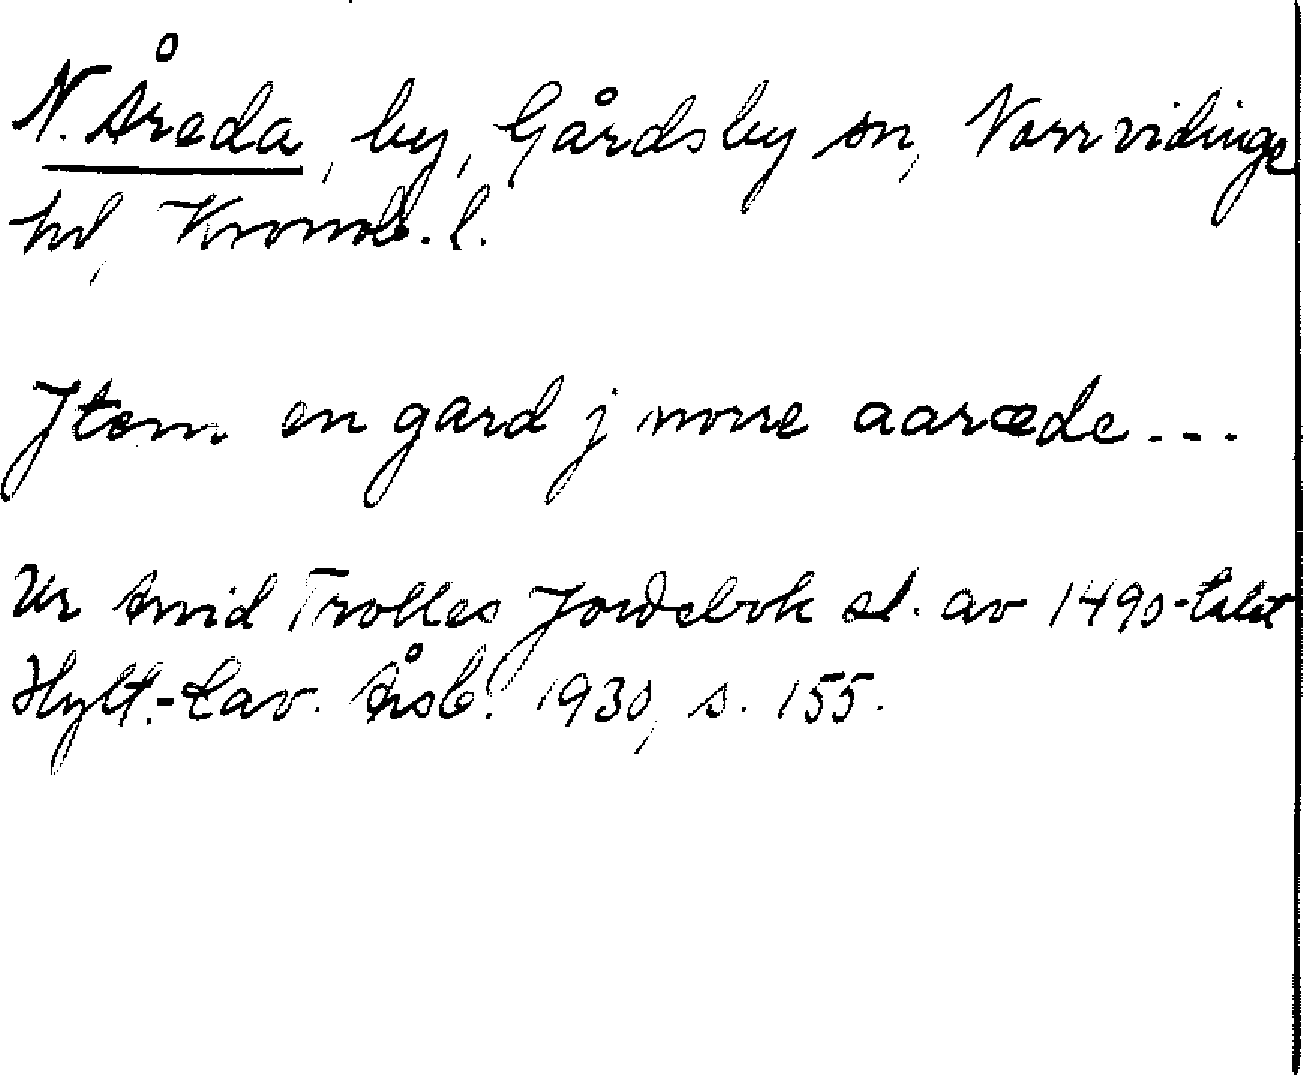 N. Åreda, by, Gårdsby sn, Norrvidinge
hd, Kronob. l.
Jtem en gard j norre aaræde ---
Ur Arvid Trolles Jordebok sl. av 1490-talet
Hylt.-Cav. Årsb. 1930, s. 155.